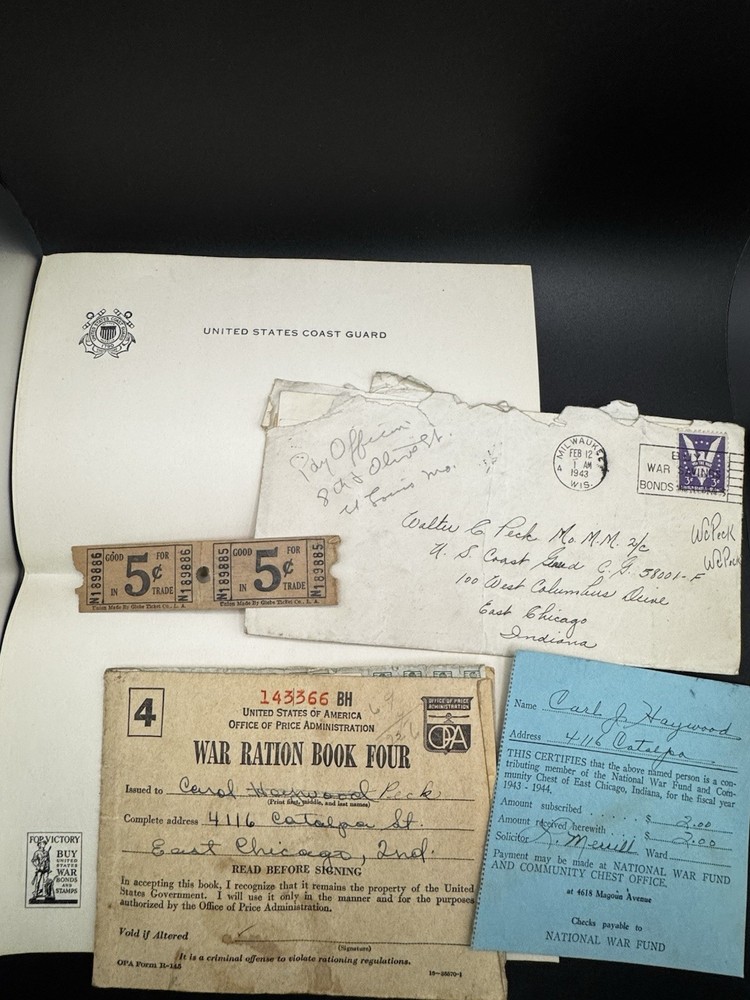 UNITED STATES COAST GUARD
Pay Officer
8th & Olive St.
St Louis Mo.
MILWAUKEE
FEB 12
1 AM
1943
WIS.
4
WAR SAVINGS
BONDS
3¢
Walter C Peck Mo. M.M. 2/c
U. S Coast Guard C. G. 38001-F
100 West Columbus Drive
East Chicago
Indiana
WCPeck
WCPeck
N189886
GOOD FOR
5¢
IN TRADE
N189886
N189885
GOOD FOR
5¢
IN TRADE
N189885
Union Made By Globe Ticket Co., L. A.
Union Made By Globe Ticket Co., L. A.
4
143366 BH
UNITED STATES OF AMERICA
OFFICE OF PRICE ADMINISTRATION
OFFICE OF PRICE
ADMINISTRATION
OPA
WAR RATION BOOK FOUR
Issued to Carol Haywood Peck
(Print first, middle, and last names)
Complete address 4116 Catalpa St.
East Chicago, Ind.
READ BEFORE SIGNING
In accepting this book, I recognize that it remains the property of the United
States Government. I will use it only in the manner and for the purposes
authorized by the Office of Price Administration.
Void if Altered
(Signature)
It is a criminal offense to violate rationing regulations.
OPA Form R-145
Name Carl J. Haywood
Address 4116 Catalpa
THIS CERTIFIES that the above named person is a con-
tributing member of the National War Fund and Com-
munity Chest of East Chicago, Indiana, for the fiscal year
1943 - 1944.
Amount subscribed $ 2.00
Amount received herewith $ 2.00
Solicitor J. Merrill Ward
Payment may be made at NATIONAL WAR FUND
AND COMMUNITY CHEST OFFICE.
at 4618 Magoun Avenue
Checks payable to
NATIONAL WAR FUND
FOR VICTORY
BUY
UNITED
STATES
WAR
BONDS
AND
STAMPS